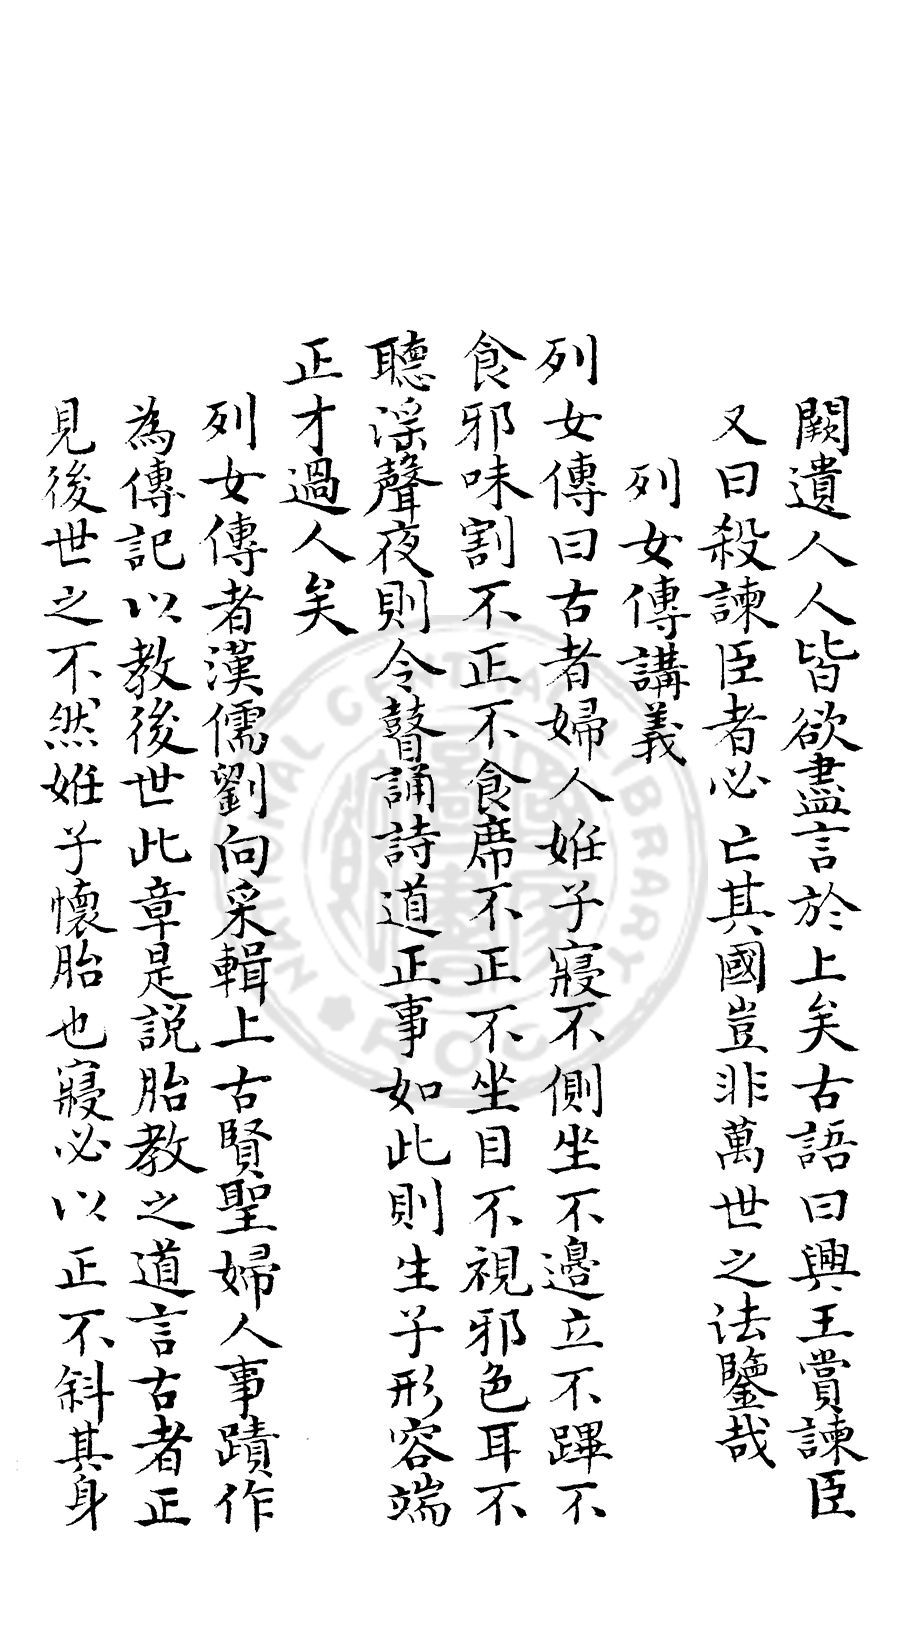 闕遺人人皆欲盡言於上矣古語曰興王賞諫臣
又曰殺諫臣者必亡其國豈非萬世之法鑒哉
列女傳講義
列女傳曰古者婦人姙子寢不側坐不邊立不蹕不
食邪味割不正不食席不正不坐目不視邪色耳不
聽淫聲夜則令瞽誦詩道正事如此則生子形容端
正才過人矣
列女傳者漢儒劉向采輯上古賢聖婦人事蹟作
為傳記以教後世此章是說胎教之道言古者正
見後世之不然姙子懷胎也寢必以正不斜其身
NATIONAL CENTRAL LIBRARY
ROC